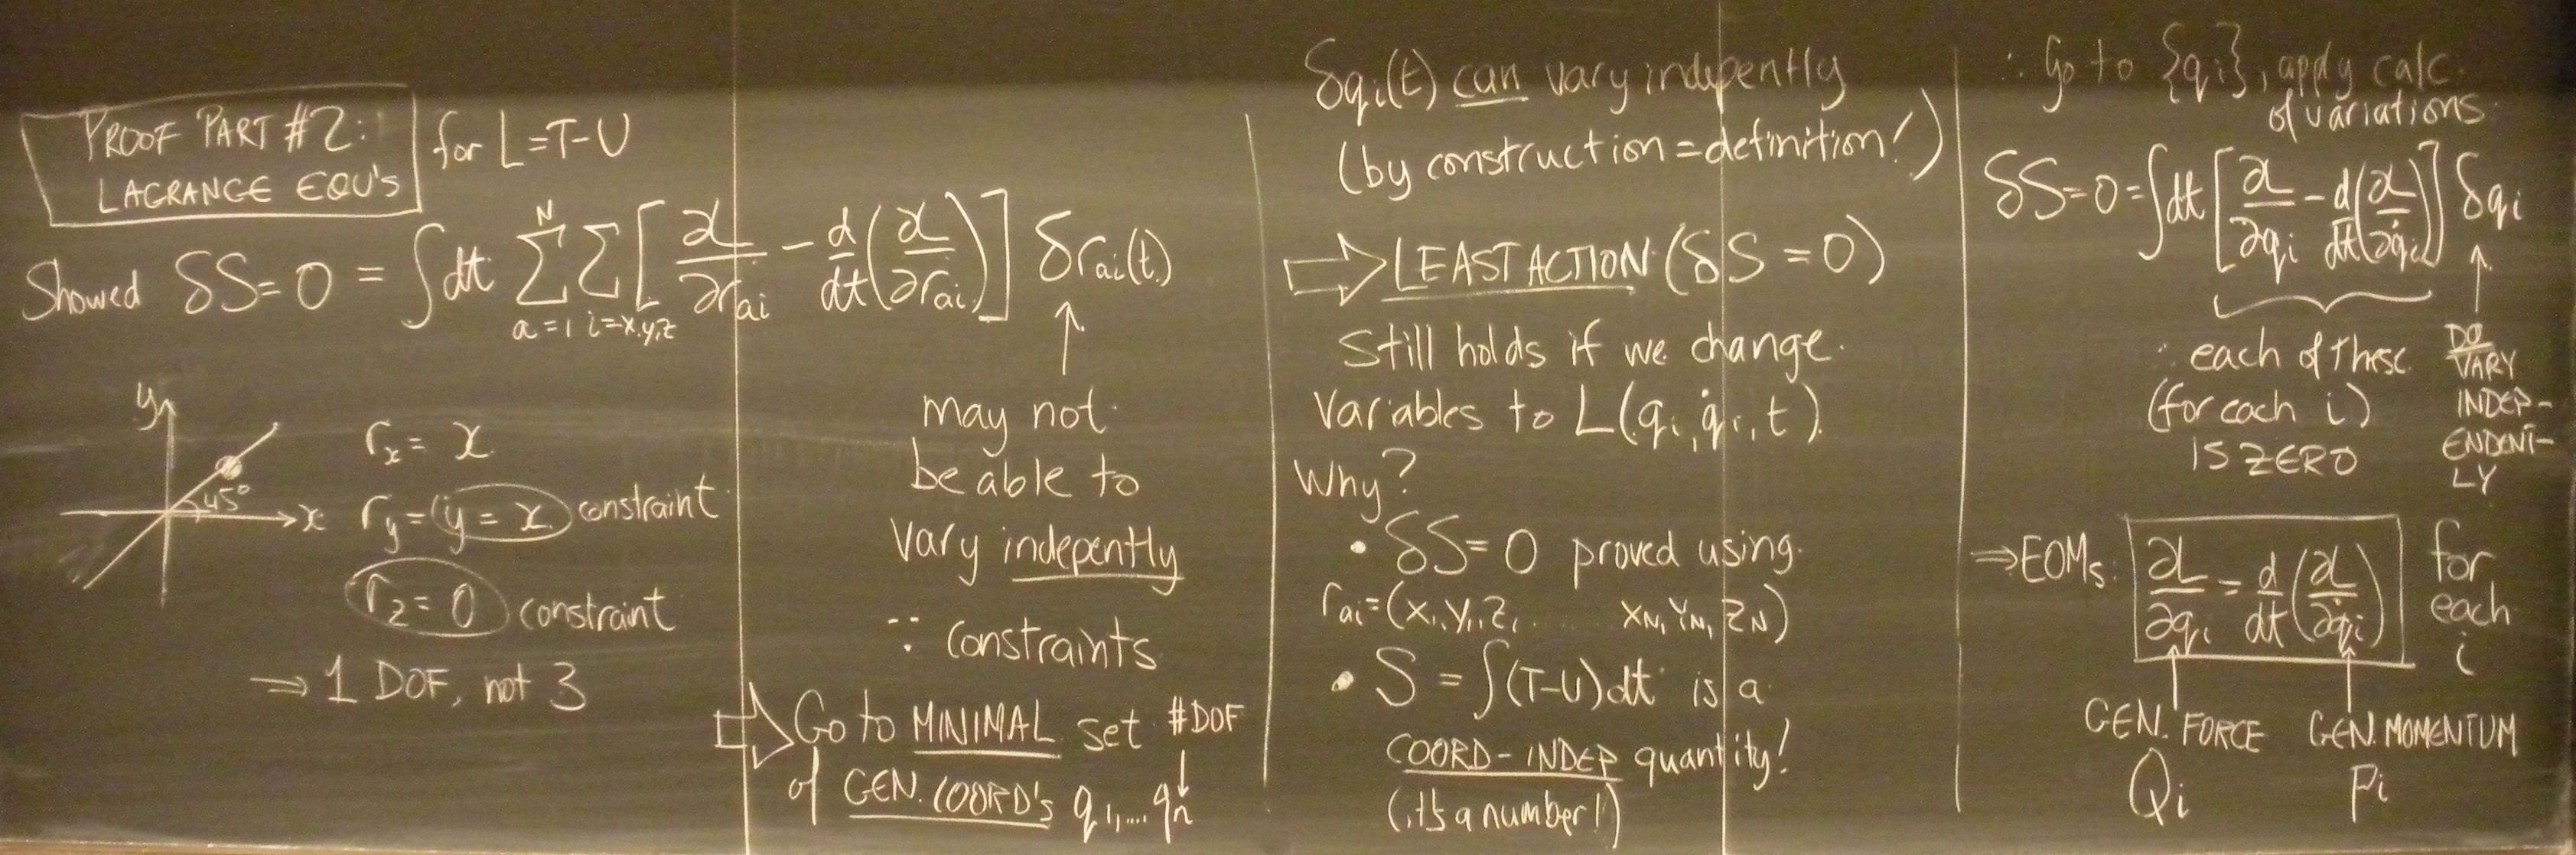 PROOF PART #2:
LAGRANGE EQU'S
for L=T-U
Showed δS=0 = ∫dt ∑_{a=1}^{N} ∑_{i=x,y,z} [∂L/∂r_{ai} - d/dt(∂L/∂ṙ_{ai})] δr_{ai}(t)
y
45°
x
r_x = x
r_y = y = x constraint
r_z = 0 constraint
⇒ 1 DOF, not 3
↑
may not
be able to
vary indepently
∵ constraints
⇒ Go to MINIMAL set #DOF
of GEN. COORD'S q_1,....q_n
δq_i(t) can vary indepently
(by construction=definition!)
⇒ LEAST ACTION (δS=0)
Still holds if we change
variables to L(q_i, q̇_i, t)
Why?
• δS=0 proved using
r_{ai}=(x_1,y_1,z_1 .... x_N,y_N,z_N)
• S = ∫(T-U)dt is a
COORD-INDEP quantity!
(it's a number!)
∴ Go to {q_i}, apply calc.
of variations
δS=0=∫dt[∂L/∂q_i - d/dt(∂L/∂q̇_i)] δq_i
∴ each of these
(for each i)
IS ZERO
↑
DO
VARY
INDEP-
ENDENT-
LY
⇒EOMs: ∂L/∂q_i = d/dt(∂L/∂q̇_i) for
each
i
GEN. FORCE
Q_i
GEN. MOMENTUM
P_i